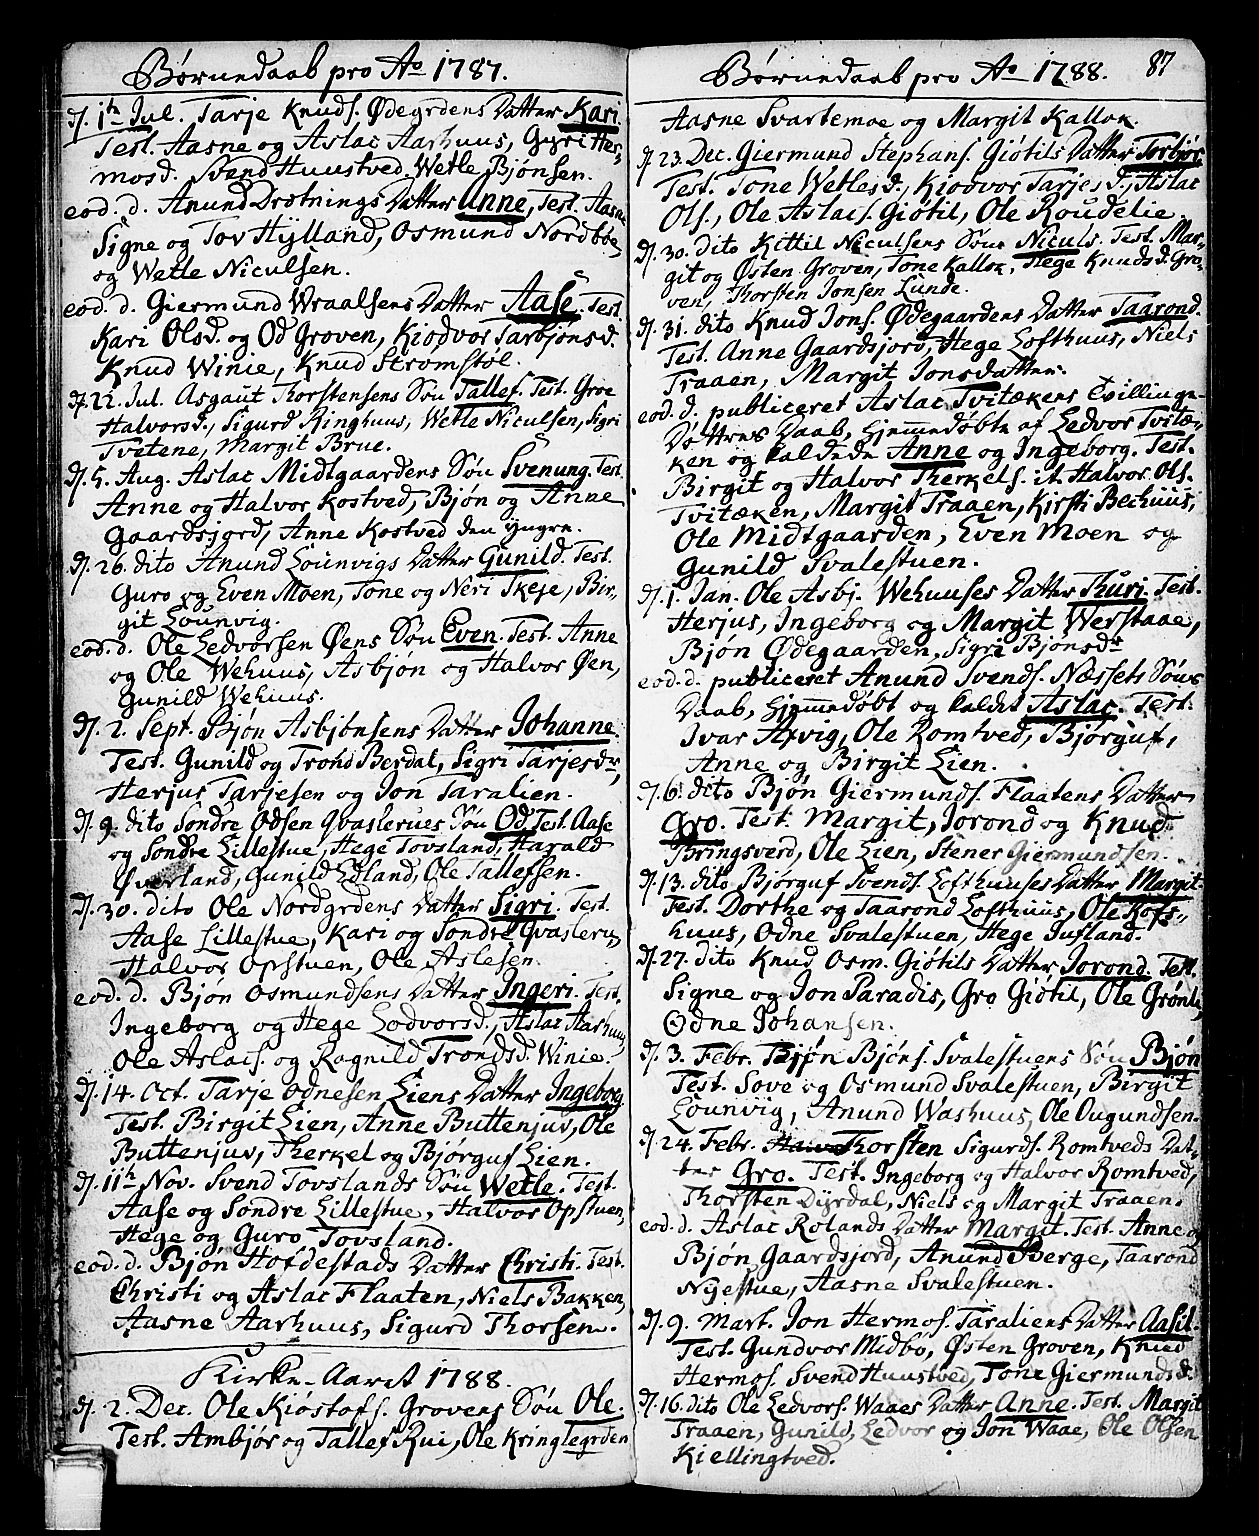 Børnedaab pro Ao 1787.
D. 1te Jul. Tarje Knuds. Ødegrdens Datter Kari.
Test. Aasne og Aslac Aarhuus, Gyri Her-
mosd. Svend Huustved, Wetle Bjønsen.
eod. d. Anund Drotnings Datter Anne, Test. Aasne
Signe og Tov Hylland, Osmund Nordbøe,
og Wetle Niculsen.
eod. d. Giermund Wraalsens Datter Aase. Test.
Kari Olsd. og Od Groven, Kiodvor Tarbjønsd.
Knud Winie, Knud Strømstøl.
D. 22. Jul. Asgaut Thorstensens Søn Tallef. Test. Groe
Halvorsd., Sigurd Ringhuus, Wetle Niculsen, Sigri
Tvetene, Margit Brue.
D. 5. Aug. Aslac Midtgaardens Søn Svenung. Test.
Anne og Halvor Kostved, Bjøn og Anne
Gaardsjord, Anne Kostved den yngre.
D. 26. dito Anund Lounvigs Datter Gunild. Test.
Guro og Even Moen, Tone og Neri Skeje, Bir-
git Lounvig.
eod. d. Ole Ledvorsen Øens Søn Even. Test. Anne
og Ole Wehuus, Asbjøn og Halvor Øen,
Gunild Wehuus.
D. 2. Sept. Bjøn Asbjønsens Datter Johanne.
Test. Gunild og Trond Berdal, Sigri Tarjesdr,
Herjus Tarjesen og Jon Taralien.
D. 9. dito Sondre Odsen Qvaslerues Søn Od. Test. Aase
og Sondre Lillestue, Hege Tovsland, Harald
Øverland, Gunild Edland, Ole Tallefsen.
D. 30. dito Ole Nordgrdens Datter Sigri. Test.
Aase Lillestue, Kari og Sondre Qvasleru,
Halvor Opstuen, Ole Aslesen.
eod. d. Bjøn Osmundsens Datter Ingeri. Test.
Ingeborg og Hege Ledvorsd., Aslac Aarhuus,
Ole Aslacs. og Ragnild Trondsd. Winie.
D. 14. Oct. Tarje Odnesen Liens Datter Ingeborg
Test. Birgit Lien, Anne Buttenjuv, Ole
Buttenjuv, Therkel og Bjørguf Lien.
D. 11te Nov. Svend Tovslands Søn Wetle. Test.
Aase og Sondre Lillestue, Halvor Opstuen,
Hege og Guro Tovsland.
eod. d. Bjøn Hordestads Datter Christi. Test.
Christi og Aslac Flaaten, Niels Bakken,
Aasne Aarhuus, Sigurd Thorsen.
Kirke-Aaret 1788.
D. 2. Dec. Ole Kiøstafs. Grovens Søn Ole.
Test. Ambjør og Tallef Rui, Ole Kringlegrden
Børnedaab pro Ao 1788. 87
Aasne Svartemoe og Margit Kallok.
D. 23. Dec. Giermund Stephans. Giøtils Datter Torbjør.
Test. Tone Wetlesd., Kiodvor Tarjesd., Aslac
Ols., Ole Aslacs. Giøtil, Ole Roudelie.
D. 30. dito Kittil Niculsens Søn Niculs. Test. Mar-
git og Østen Groven, Tone Kallok, Hege Knudsd. Gro-
ven, Thorsten Jonsen Lunde.
D. 31. dito Knud Jons. Ødegaardens Datter Taarond.
Test. Anne Gaardsjord, Hege Lofthuus, Niels
Traaen, Margit Jonsdatter.
eod. d. publiceret Aslac Tvitækens Tvillinge-
Døttres Daab, hjemmedøbte af Ledvor Tvitæ-
ken og kaldede Anne og Ingeborg. Test.
Birgit og Halvor Therkels. it. Halvor Ols.
Tvitæken, Margit Traaen, Kirsti Bechuus,
Ole Midtgaarden, Even Moen og
Gunild Svalestuen.
D. 1. Jan. Ole Asbj. Wehuuses Datter Thuri. Test.
Herjus, Ingeborg og Margit Werstaae,
Bjøn Ødegaarden, Sigri Bjønsdr
eod. d. publiceret Anund Svends. Næssets Søns
Daab, hjemmedøbt og kaldet Aslac. Test.
Ivar Arvig, Ole Romtved, Bjørguf,
Anne og Birgit Lien.
D. 6. dito Bjøn Giermunds. Flaatens Datter
Gro. Test. Margit, Jorond og Knud
Bringsverd, Ole Lien, Stener Giermundsen.
D. 13. dito Bjørguf Svends. Lofthuuses Datter Margit
Test. Dorthe og Taarond Lofthuus, Ole Rofs-
huus, Odne Svalestuen, Hege Jufland.
D. 27. dito Knud Osm. Giøtils Datter Jorond. Test.
Signe og Jon Paradis, Gro Giøtil, Ole Grønli,
Odne Johansen.
D. 3. Febr. Bjøn Bjøns. Svalestuens Søn Bjøn
Test. Sove og Osmund Svalestuen, Birgit
Lounvig, Anund Washuus, Ole Ougundsen.
D. 24. Febr. Thorsten Sigurds. Romtveds Dat-
ter Gro. Test. Ingeborg og Halvor Romtved,
Thorsten Dyrdal, Niels og Margit Traaen.
eod. d. Aslac Rolands Datter Margit. Test. Anne og
Bjøn Gaardsjord, Anund Berge, Taarond
Nyestue, Aasne Svalestuen.
D. 9. Mart. Jon Hermos. Taraliens Datter Aasil.
Test. Gundvor Midbø, Østen Groven, Knud
Hermos. Svend Huustved, Tone Giermundsd.
D. 16. dito Ole Ledvors. Waaes Datter Anne. Test. Margit
Traaen, Gunild, Ledvor og Jon Waae, Ole Olsen
Kiellingtved.